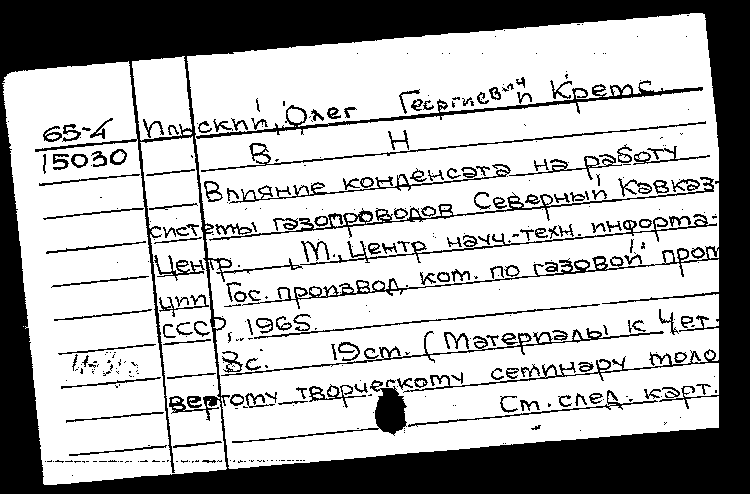 65-4 Ильский, Олег Георгиевич и Кретс.
15030 В. Н
Влияние конденсата на работу
системы газопроводов Северный Кавказ-
Центр. М., Центр науч.-техн. информа-
ции Гос. производ. ком. по газовой пром
СССР, 1965.
8с. 19 см. (Материалы к Чет-
вертому творческому семинару моло
См. след. карт.